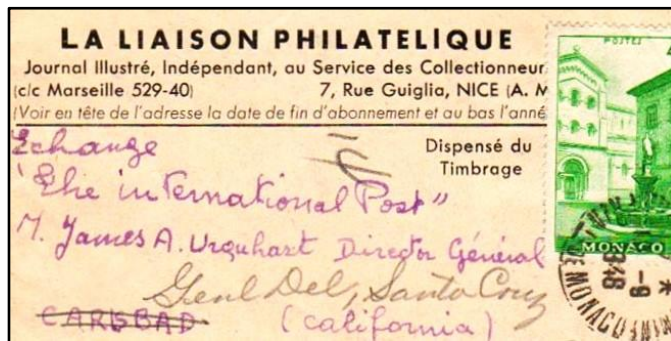 LA LIAISON PHILATELIQUE
Journal Illustré, Indépendant, au Service des Collectionneur
(c/c Marseille 529-40) 7, Rue Guiglia, NICE (A. M
(Voir en tête de l'adresse la date de fin d'abonnement et au bas l'anné
Echange
Dispensé du
Timbrage
"The international Post"
M. James A. Urquhart Director Général
Genl Del, Santa Cruz
CARLSBAD (California)
POSTES
MONACO
MONACO